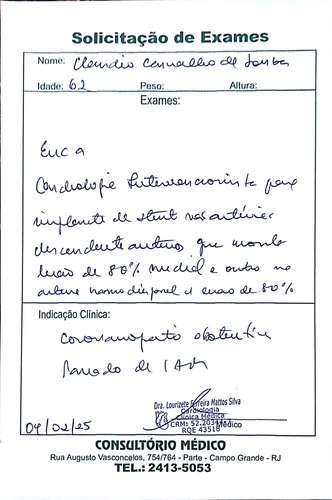 Solicitação de Exames
Nome: Claudio Carvalho de
Idade: 62 Peso: Altura:
Exames:
Enc a
Cardiologia Intervencionista para
implante de stent nas artérias
descendente anterior que mostra
lesão de 80% medial e outro na
artéria lesão de 80%
Indicação Clínica:
Coronariopatia obstrutiva
Passado de IAM
Dra. Lourizete Ferreira Mattos Silva
Cardiologia
Clínica Médica
CRM: 52.
RQE 43518
Médico
04/02/25
CONSULTÓRIO MÉDICO
Rua Augusto Vasconcelos, 754/764 - Parte - Campo Grande - RJ
TEL.: 2413-5053